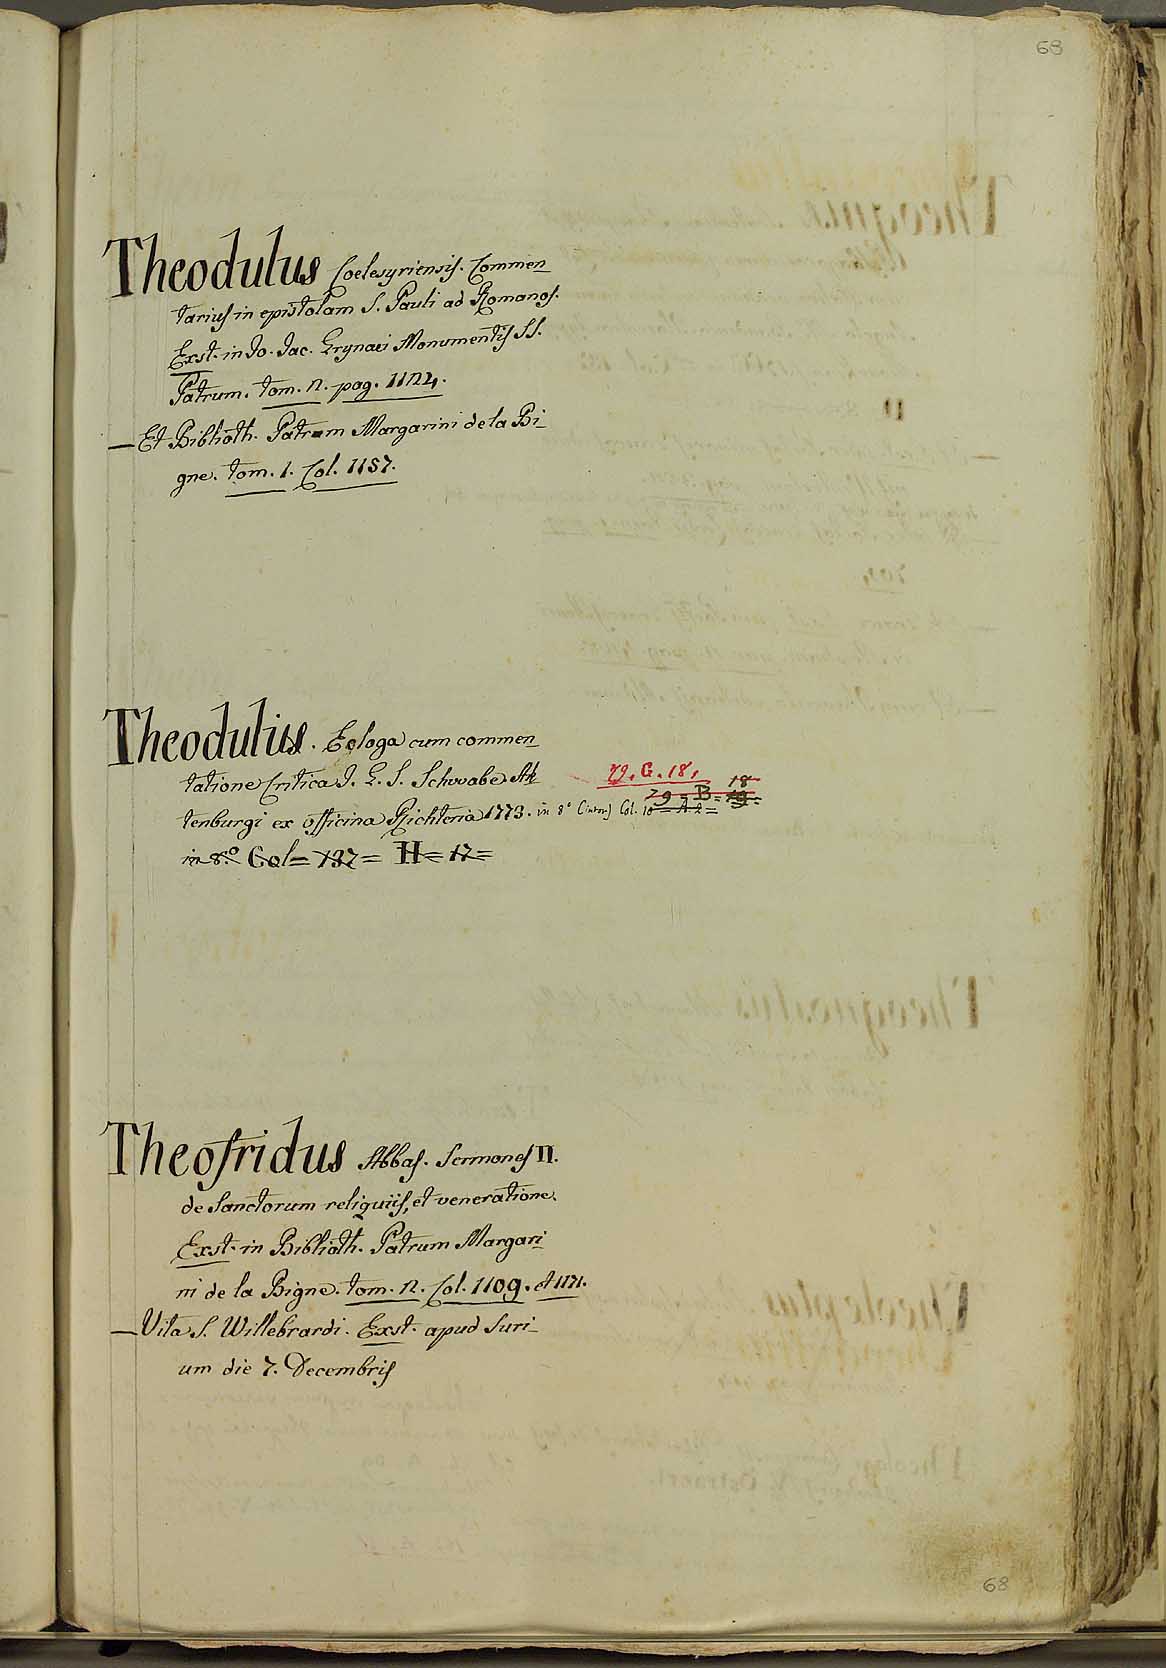 68
Theodulus Coelesyriensis. Commen
tarius in epistolam S. Pauli ad Romanos.
Exst. in Jo. Jac. Grynaei Monumentis SS.
Patrum. tom. II. pag. 1124.
— Et Biblioth. Patrum Margarini de la Bi
gne. tom. 1. Col. 1157.
Theodulus. Ecloga cum commen
tatione Critica J. E. S. Schwabe. Al
tenburgi ex officina Richteria 1773. in 8°
29. G. 18.
29 = B = 18
in 8.° Col = 137 = H = 17 =
Theofridus Abbas. Sermones II.
de Sanctorum reliquiis, et veneratione.
Exst. in Biblioth. Patrum Margari
ni de la Bigne. tom. II. Col. 1109. et 1171.
— Vita S. Willebrardi. Exst. apud Suri
um die 7. Decembris
68